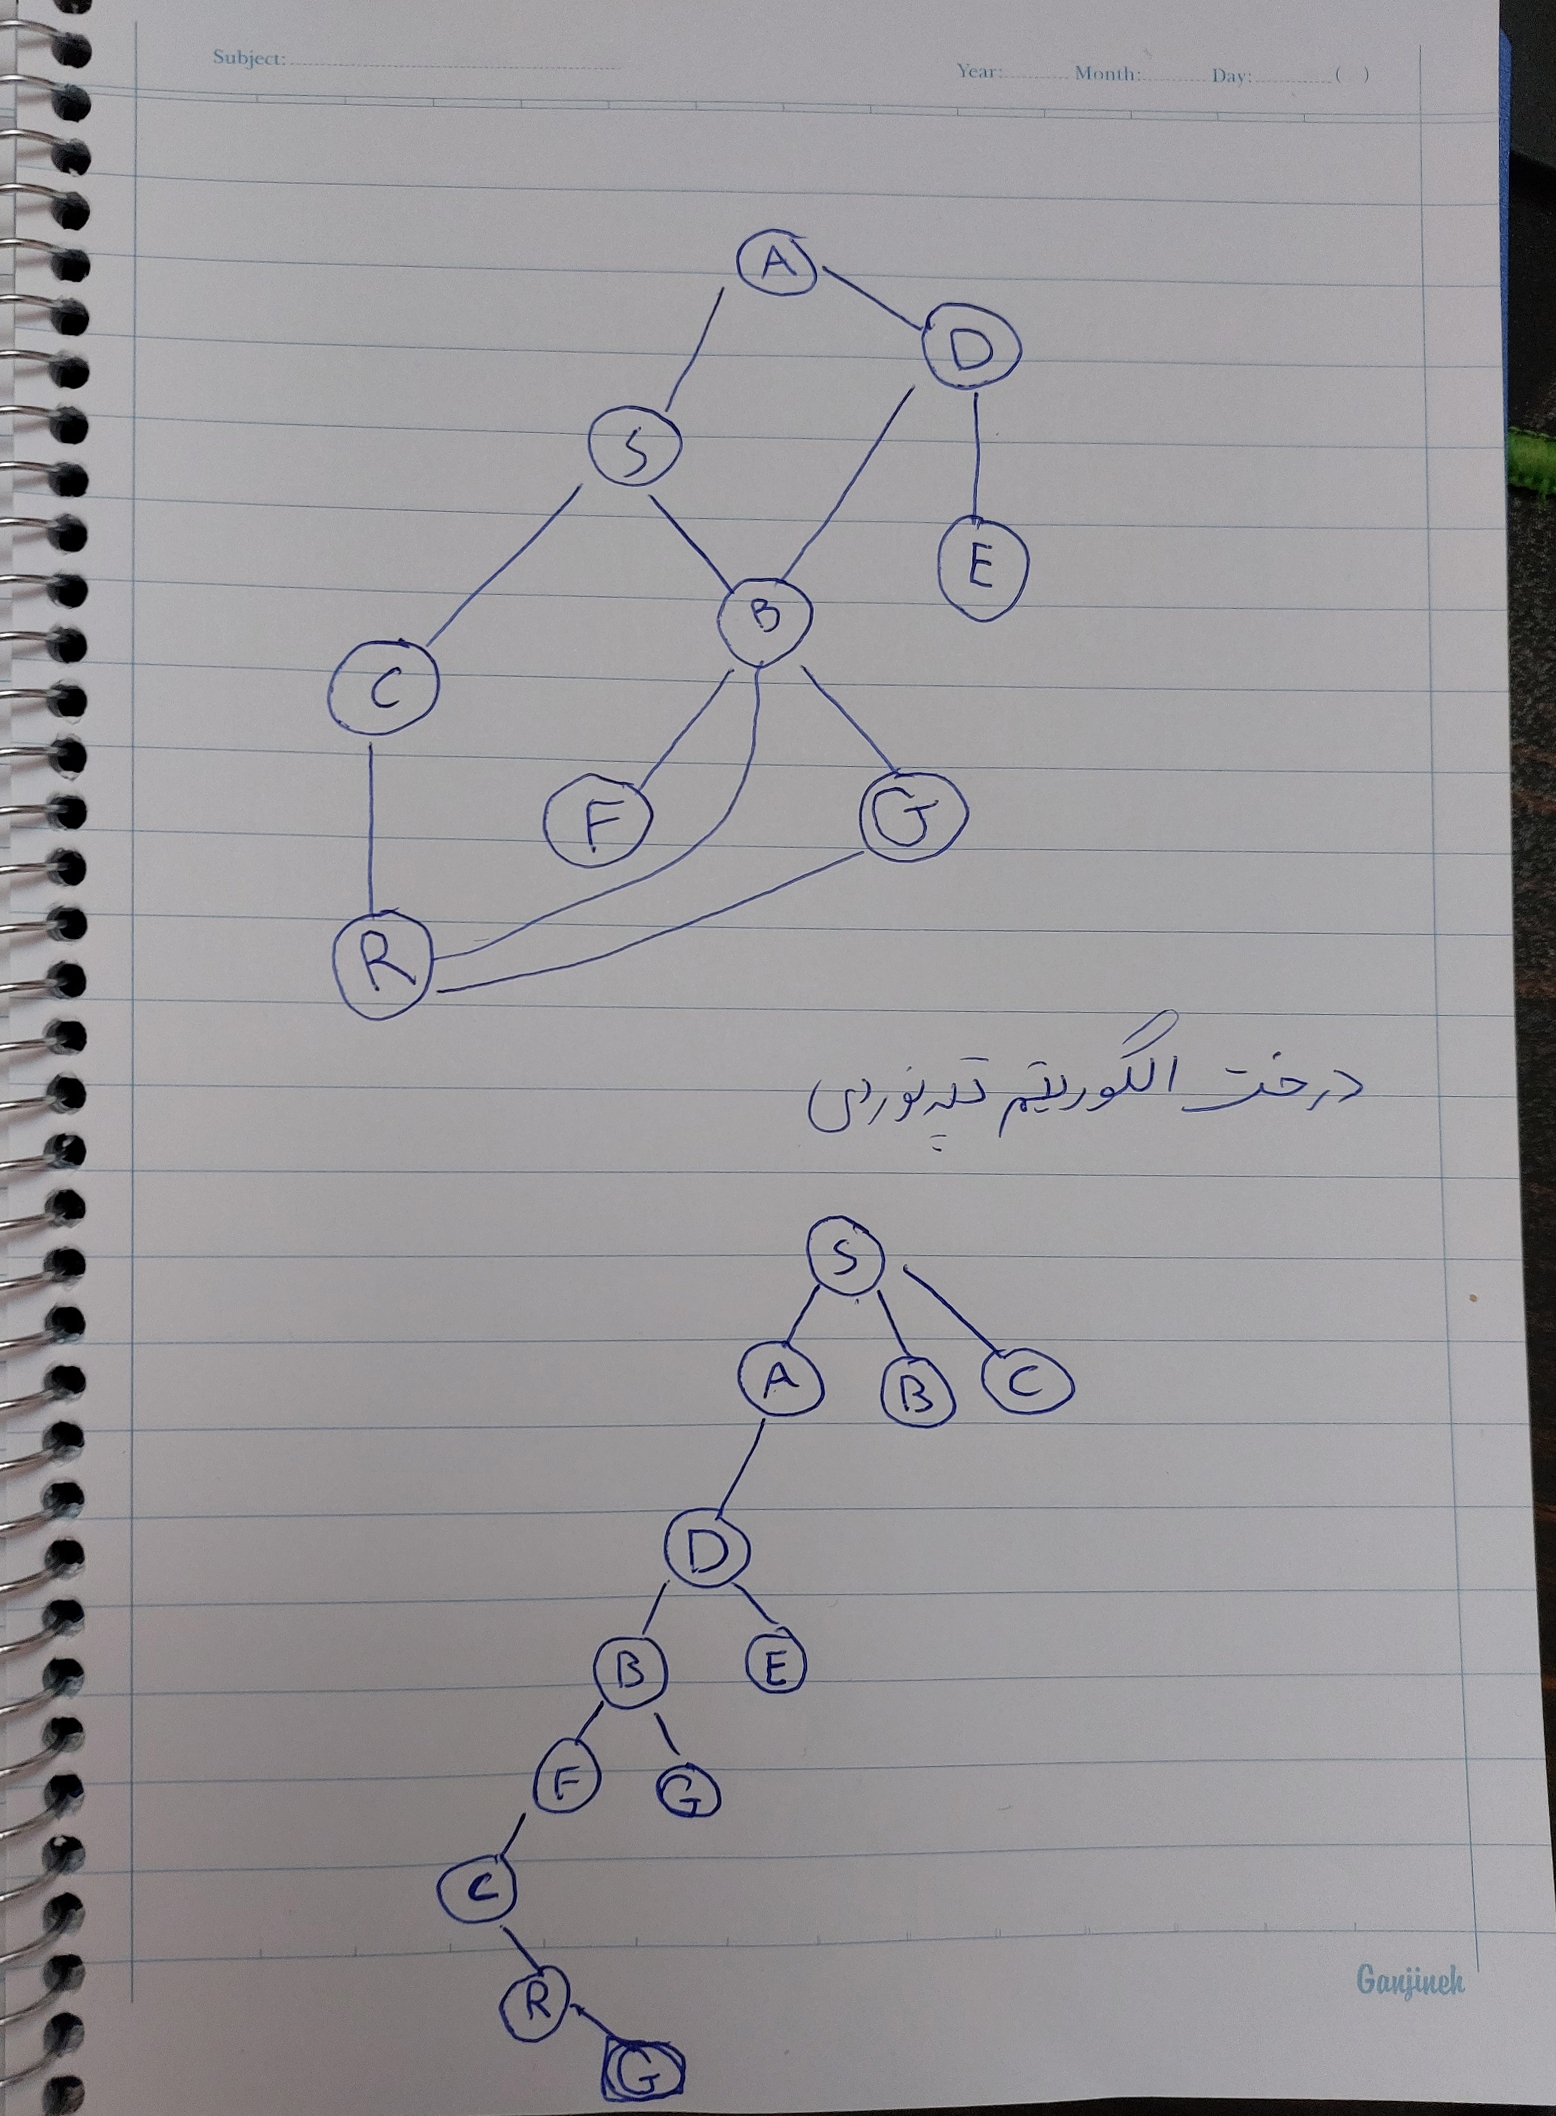 Subject:
Year: Month: Day: ( )
A
D
S
E
B
C
F
G
R
درخت الگوریتم تپه نوردی
S
A B C
D
B E
F G
C
R
G
Ganjineh